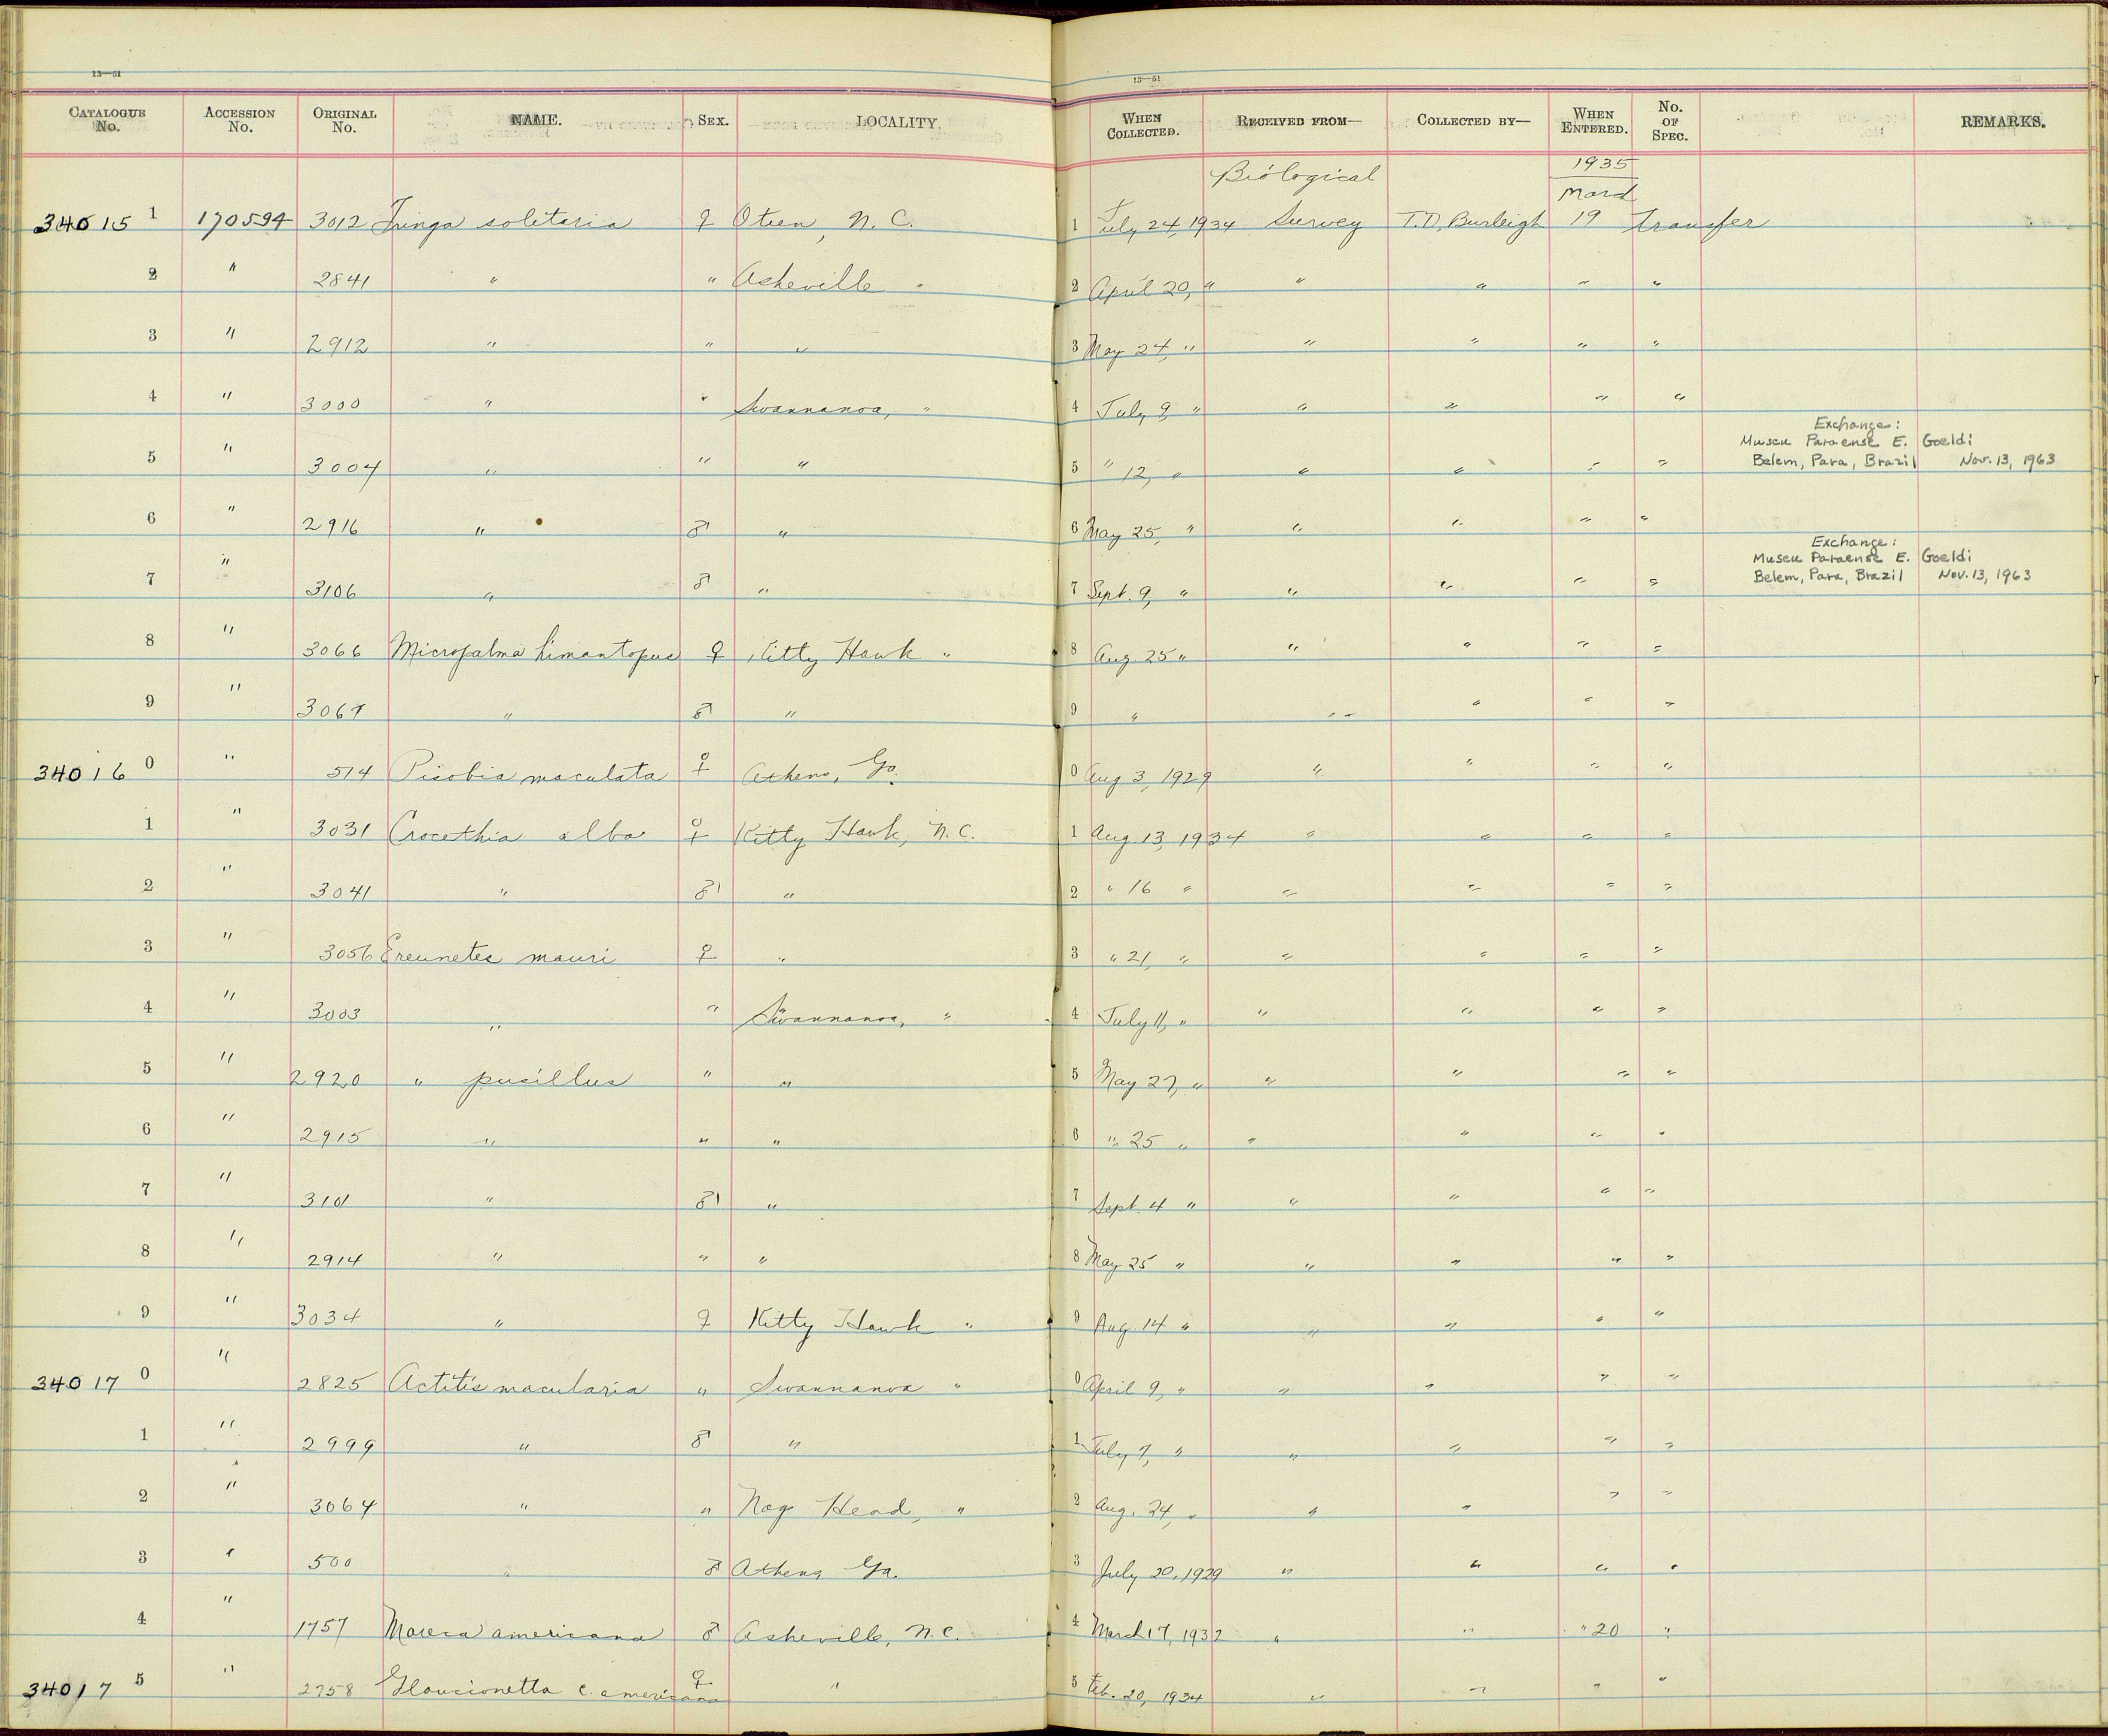 13—51 13—51
CATALOGUE No. ACCESSION No. ORIGINAL No. NAME. SEX. LOCALITY. WHEN COLLECTED. RECEIVED FROM— COLLECTED BY— WHEN ENTERED. No. OF SPEC. REMARKS.
Biological 1935
March
34015 1 170594 3012 Tringa solitaria ♀ Oteen, N.C. 1 July 24, 1934 Survey T.D. Burleigh 19 Transfer
2 " 2841 " " Asheville " 2 April 20, " " " " "
3 " 2912 " " " 3 May 24, " " " " "
4 " 3000 " " Swannanoa, " 4 July 9, " " " " "
5 " 3004 " " " 5 " 12, " " " " " Exchange:
Museu Paraense E. Goeldi
Belem, Para, Brazil Nov. 13, 1963
6 " 2916 " ♂ " 6 May 25, " " " " "
7 " 3106 " ♂ " 7 Sept. 9, " " " " " Exchange:
Museu Paraense E. Goeldi
Belem, Para, Brazil Nov. 13, 1963
8 " 3066 Micropalma himantopus ♀ Kitty Hawk " 8 Aug 25 " " " " "
9 " 3067 " ♂ " 9 " " " " "
34016 0 " 514 Pisobia maculata ♀ Athens, Ga. 0 Aug 3, 1929 " " " "
1 " 3031 Crocethia alba ♀ Kitty Hawk, N.C. 1 Aug 13, 1934 " " " "
2 " 3041 " ♂ " 2 " 16 " " " " "
3 " 3056 Ereunetes mauri ♀ " 3 " 21, " " " " "
4 " 3003 " " Swannanoa, " 4 July 11, " " " " "
5 " 2920 " pusillus " " 5 May 27, " " " " "
6 " 2915 " " " 6 " 25 " " " " "
7 " 3101 " ♂ " 7 Sept. 4 " " " " "
8 " 2914 " " " 8 May 25 " " " " "
9 " 3034 " ♀ Kitty Hawk " 9 Aug. 14 " " " " "
34017 0 " 2825 Actitis macularia " Swannanoa " 0 April 9, " " " " "
1 " 2999 " ♂ " 1 July 7, " " " " "
2 " 3064 " " Nag Head, " 2 Aug. 24, " " " " "
3 " 500 " ♂ Athens Ga. 3 July 20, 1929 " " " "
4 " 1757 Mareca americana ♂ Asheville, N.C. 4 March 17, 1932 " " " 20 "
34017 5 " 2758 Glaucionetta c. americana ♀ " 5 Feb. 20, 1934 " " " "